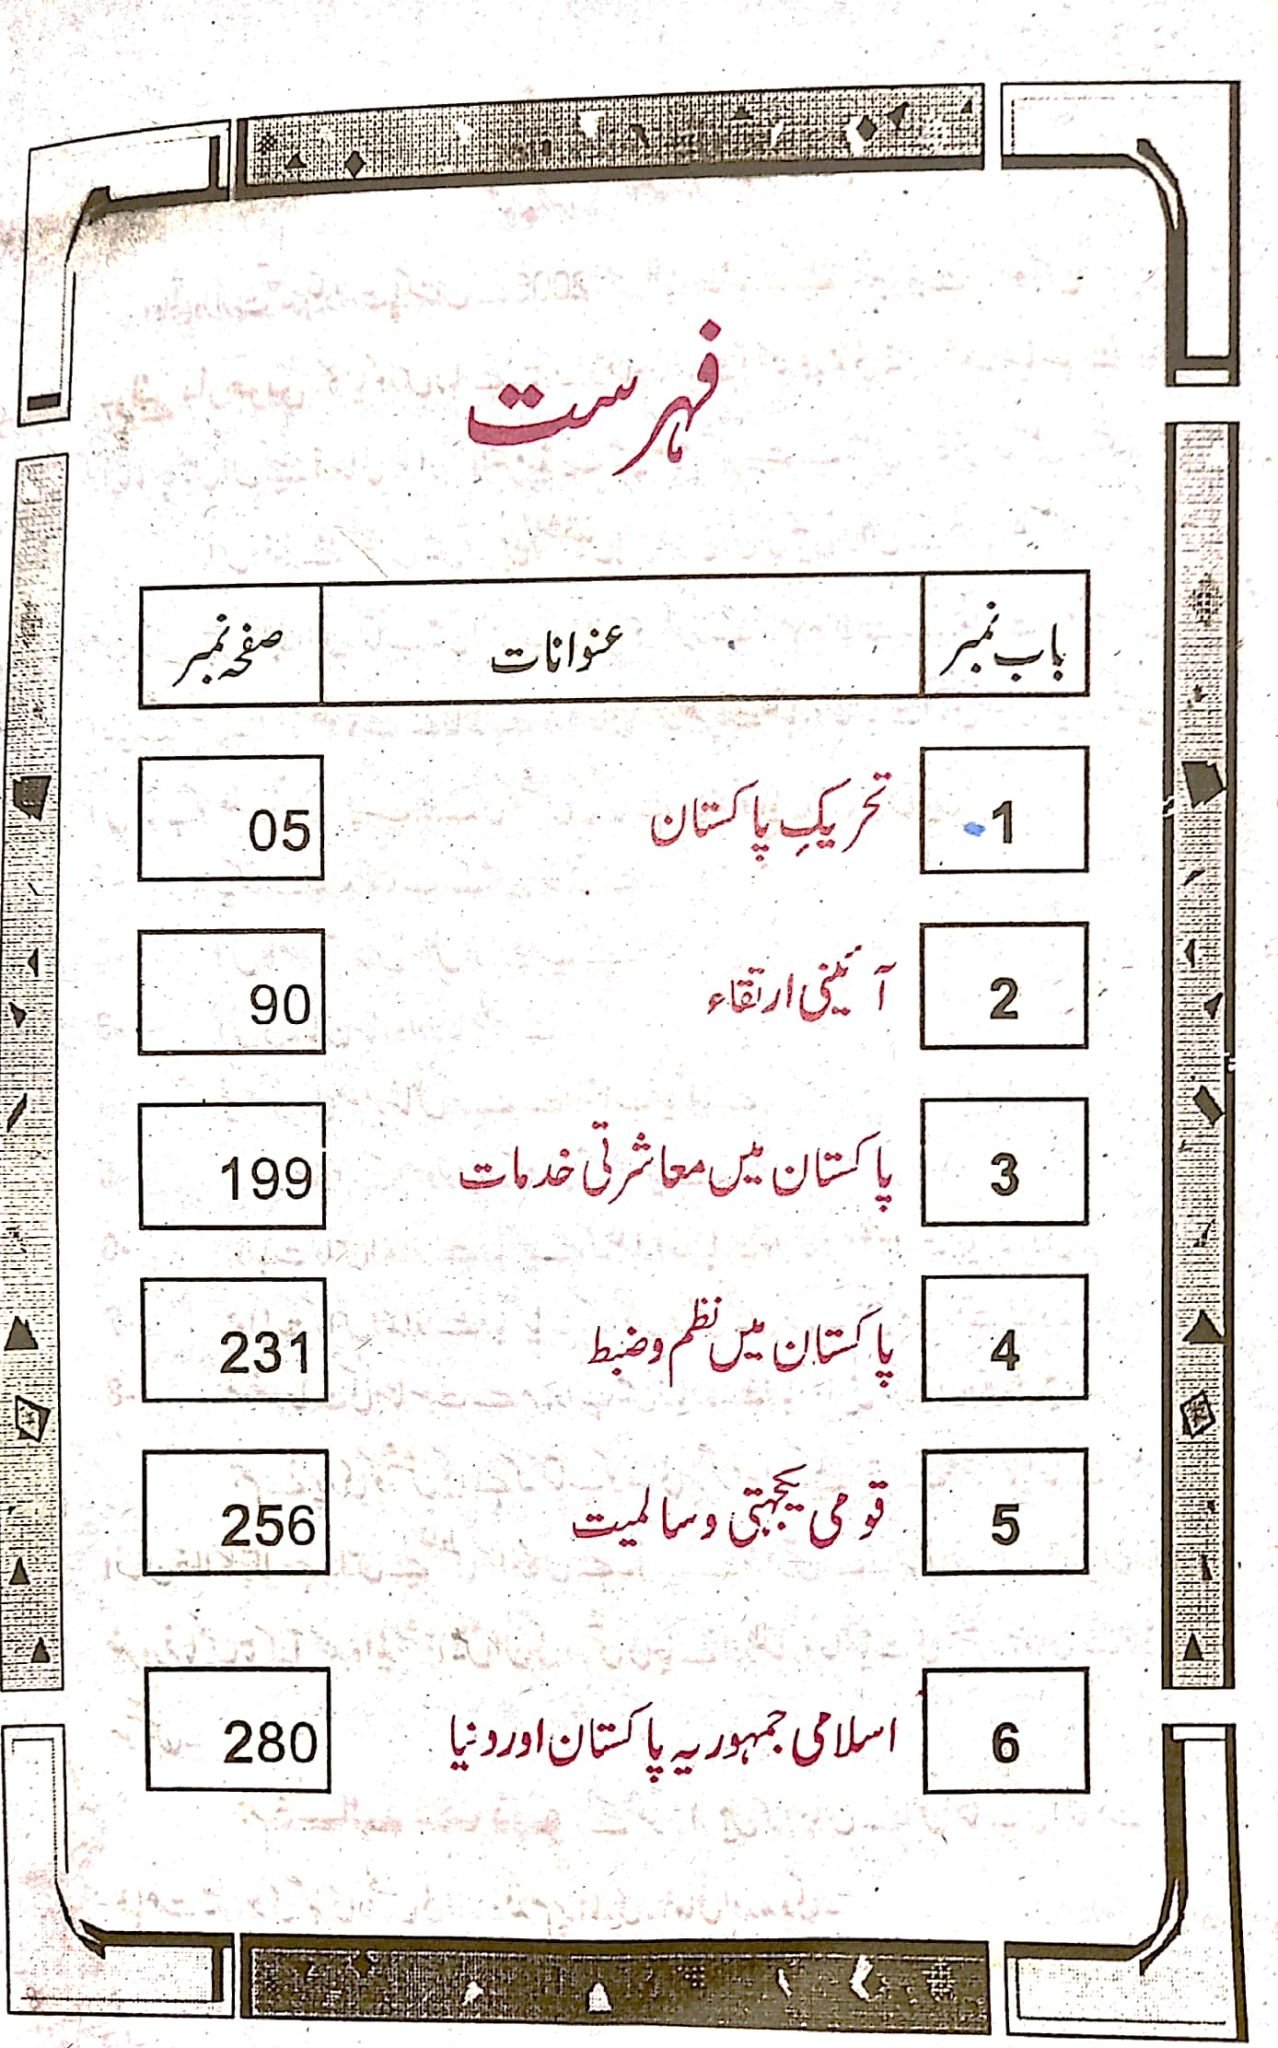 فہرست
باب نمبر عنوانات صفحہ نمبر
1 تحریکِ پاکستان 05
2 آئینی ارتقاء 90
3 پاکستان میں معاشرتی خدمات 199
4 پاکستان میں نظم و ضبط 231
5 قومی یکجہتی و سالمیت 256
6 اسلامی جمہوریہ پاکستان اور دنیا 280